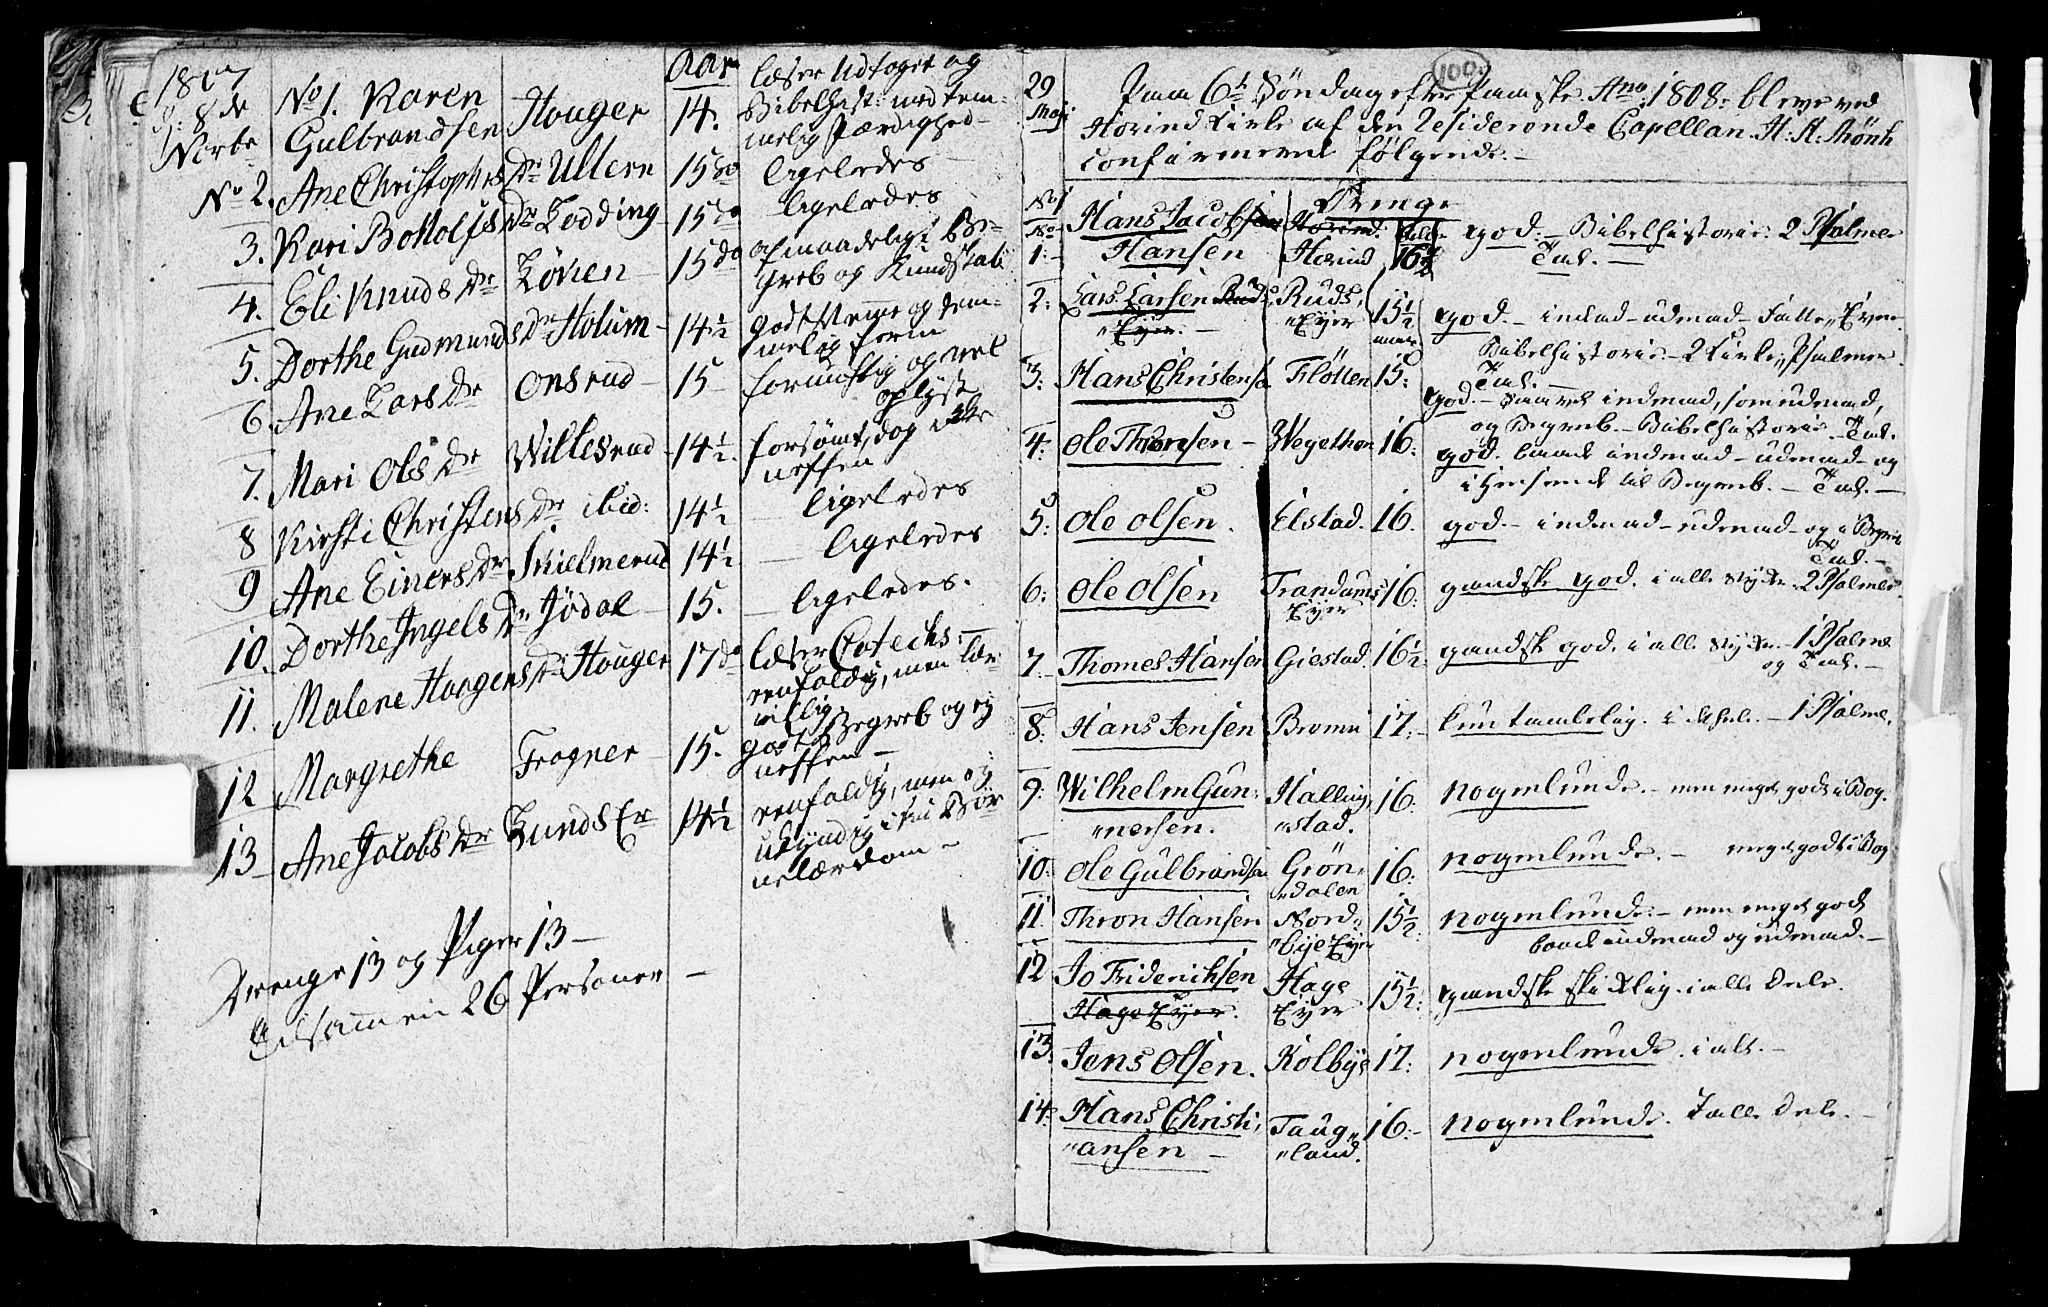 1807
d: 8de
Nvbr
Aar
No 1. Karen Gulbrandsen Houger 14. læser Udtoget og
Bibelhist: med tem-
melig Færdighed-
No 2. Ane Christophers Dr Ullern 15 do ligeledes
3. Kari Bottolfs Dr Lodding 15 do ligeledes
4. Eli Knuds Dr Löken 15 do ofmaadelig i Be-
greb og Kundskab
5. Dorthe Gudmunds Dr Holum - 14 1/2 godt Nemme og tem-
melig ferm
6. Ane Lars Dr Onsrud - 15 - fornuftig og vel
oplyst
7. Mari Ols Dr Willesrud - 14 1/2. forsömt, dog ikke
neffen
8 Kirsti Christens Dr ibid: 14 1/2 - ligeledes
9 Ane Einers Dr Skielmerud 14 1/2 - ligeledes
10. Dorthe Ingels Dr Jödal - 15. - ligeledes.
11. Malene Haagens Dr Houger 17 do læser Catechs:
eenfoldig, men lær-
villig.
12 Margrethe Frogner - 15. godt Begreb og ej
neffen -
13 - Ane Jacobs Dr Lunds Er 14 1/2 eenfoldig, men ej
ukyndig i sin Bör-
nelærdom -
Drenge 13 og Piger 13 -
Tilsammen 26 Personer -
100.
29
Maji
Paa 6t Söndag efter Paaske Ano: 1808: bleve ved
Hovind Kirke af den Residerende Capellan H: H: Mönk
confirmerede følgende. -
Drenge
No 1
No 1: - Hans Jacobsen Hansen Hovind 16 1/2 god. - Bibelhistorie. 2 Psalmer
Tal. -
2: Lars Larsen Ruds Ruds,
"Eyer. - "Eyer 15 1/2 god. - indad - udenad - I alle
Bibelhistorie - 2 Kirke,, Psalmer.
Tal. -
3: Hans Christensen Flötten 15: god. - saavel indenad, som udenad,
og Begreb. - Bibelhistorie. - Tal.
4: Ole Thorsen - Wegethen 16: god. baade indenad - udenad - og
i Henseende til Begreb. - Tal. -
5: Ole Olsen. Elstad. 16. god. - indenad - udenad - og i Begreb
Tal. -
6: Ole Olsen Trandums
Eyer 16: gandske god. i alle Stykker. 2 Psalmer.
7. - Thomes Hansen Giestad. 16 1/2 gandske god. i alle Stykker - 1 Psalme
og Tal. -
8: Hans Jensen Bromn 17: - kun taalelig. 1 Psalme.
9: Wilhelm Gun-
"nersen. Halling,
"stad. 16. nogenlunde. - men meget godt i Bog.
10: Ole Gulbrandsen Grön,
"dalen 16: nogenlunde. - meget godt i Bog
11. Thron Hansen Nord,
"bye Eyer 15 1/2: nogenlunde. - men meget godt
baade indenad og udenad. -
12 Jo Friderichsen Hage
Hage Eyer. Eyer 15 1/2: gandske skikkelig. i alle Dele.
13. Jens Olsen. Kolbye 17: nogenlunde. i alt. -
14: Hans Christi,
"ansen - Taug,,
"land. 16: - nogenlunde. I alle Dele. -